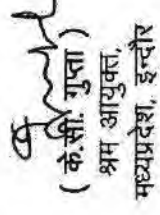 ( के.सी. गुप्ता )
श्रम आयुक्त,
मध्यप्रदेश, इन्दौर